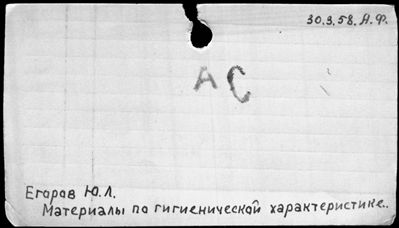 30.3.58. А.Ф.
А С
Егоров Ю.Л.
Материалы по гигиенической характеристике..